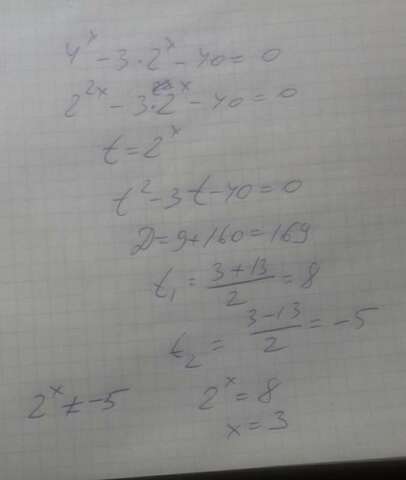 4^x - 3·2^x - 40 = 0
2^2x - 3·2^x - 40 = 0
t = 2^x
t^2 - 3t - 40 = 0
D = 9 + 160 = 169
t₁ = (3 + 13)/2 = 8
t₂ = (3 - 13)/2 = -5
2^x ≠ -5 2^x = 8
x = 3